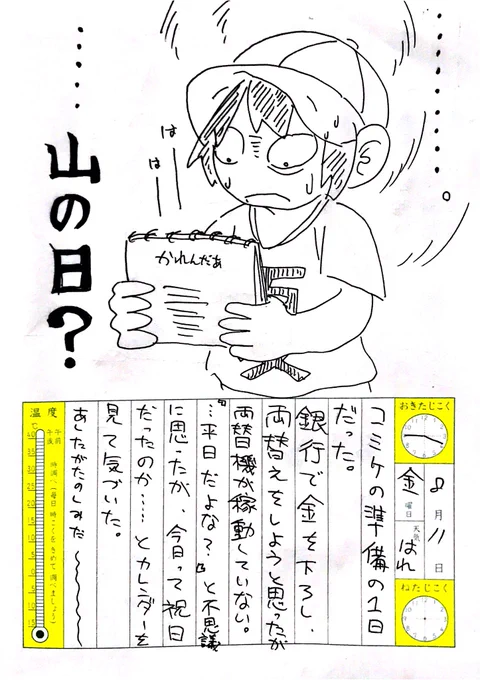 ……。
はーー
はーー
……山の日？
かれんだぁ
おきたじこく
金
曜日
8月11日
天気
はれ
ねたじこく
コミケの準備の1日
だった。
銀行で金を下ろし、
両替えをしようと思ったが
両替機が稼動していない。
「…平日だよな？」と不思議
に思ったが、今日って祝日
だったのか……とカレンダーを
見て気づいた。
あしたがたのしみだ〜〜〜
温度
℃
午前
午後
時調べ(毎日時こくをきめて調べましょう)
40
35
30
25
20
15
10
5
0
5
10
15